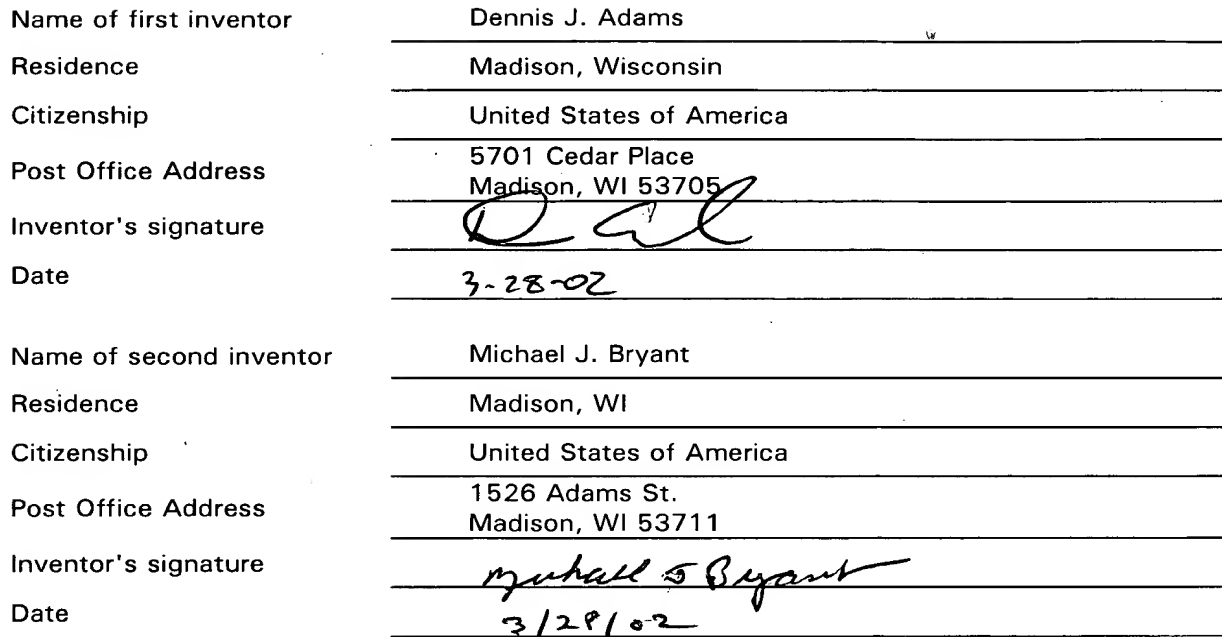 Name of first inventor Dennis J. Adams
Residence Madison, Wisconsin
Citizenship United States of America
Post Office Address 5701 Cedar Place
Madison, WI 53705
Inventor's signature
Date 3-28-02
Name of second inventor Michael J. Bryant
Residence Madison, WI
Citizenship United States of America
Post Office Address 1526 Adams St.
Madison, WI 53711
Inventor's signature Michael J Bryant
Date 3/28/02